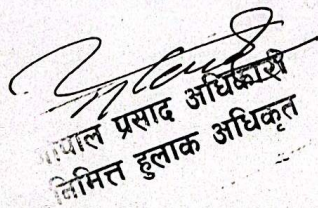 गोपाल प्रसाद अधिकारी
निमित्त हुलाक अधिकृत